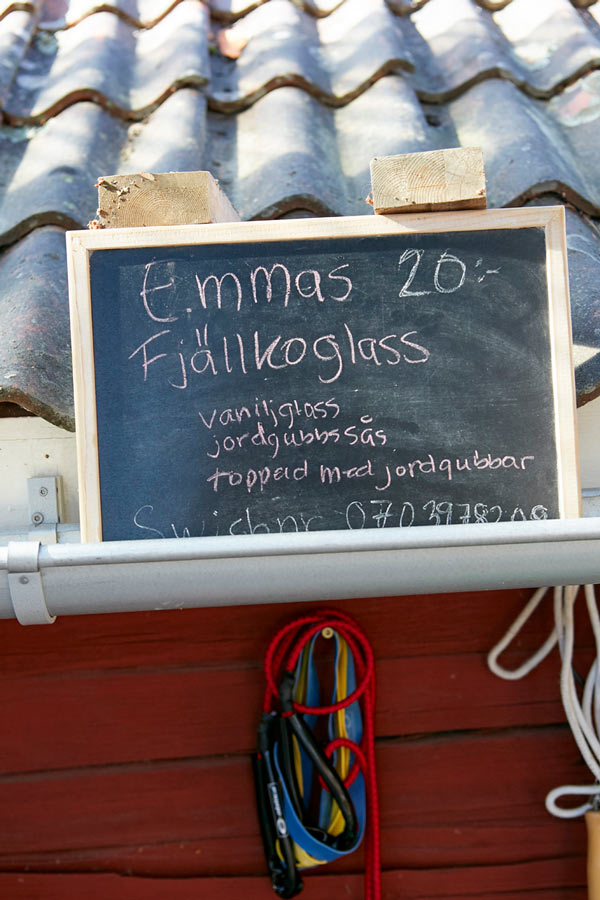 Emmas 20:-
Fjällkoglass
vaniljglass
jordgubbssås
toppad med jordgubbar
Swishnr 0703978209